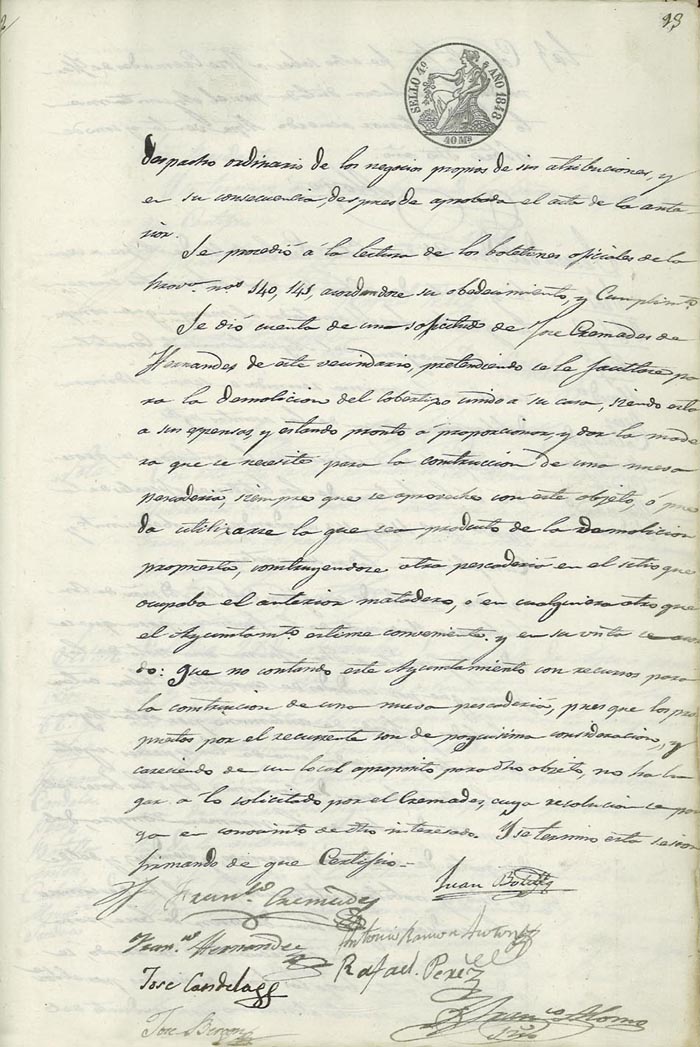 93
SELLO 4º AÑO 1848
40 Ms
despacho ordinario de los negocios propios de sus atribuciones, y
en su consecuencia, despues de aprobada el acta de la ante
rior.
Se procedió á la lectura de los boletines oficiales de la
Prova. nos. 140, 141, acordandose su obedecimiento, y Cumplimto.
Se dió cuenta de una solicitud de Jose Cremades de
Hernandez de este vecindario, pretendiendo se le facultase pa
ra la demolicion del cobertizo unido á su casa, siendo esto
a sus espensas, y estando pronto á proporcionar, y dar la made
ra que se necesite para la contruccion de una nueva
pescaderiá, siempre que se aproveche con este objeto, ó pue
da utilizarse la que sea producto de la demolicion
propuesta, contruyendose otra pescaderiá en el sitio que
ocupaba el anterior matadero, ó en cualquiera otro que
el Ayuntamto. estime conveniente. y en su vista se acor
dó: que no contando este Ayuntamiento con recursos para
la contrucion de una nueva pescaderiá, pues que los pro
puestos por el recurrente son de poquisima consideracion, y
careciendo de un local aproposito para dho objeto, no ha lu
gar a lo solicitado por el Cremades, cuya resolucion se pon
ga en conocimto de dho interesado. Y se termino esta sesion
firmando de que Certifico=
Franco. Cremades
Juan
Franco. Hernandez
Antonio Ramon
Jose Candela
Rafael Perez
Jose
Franco Alonso